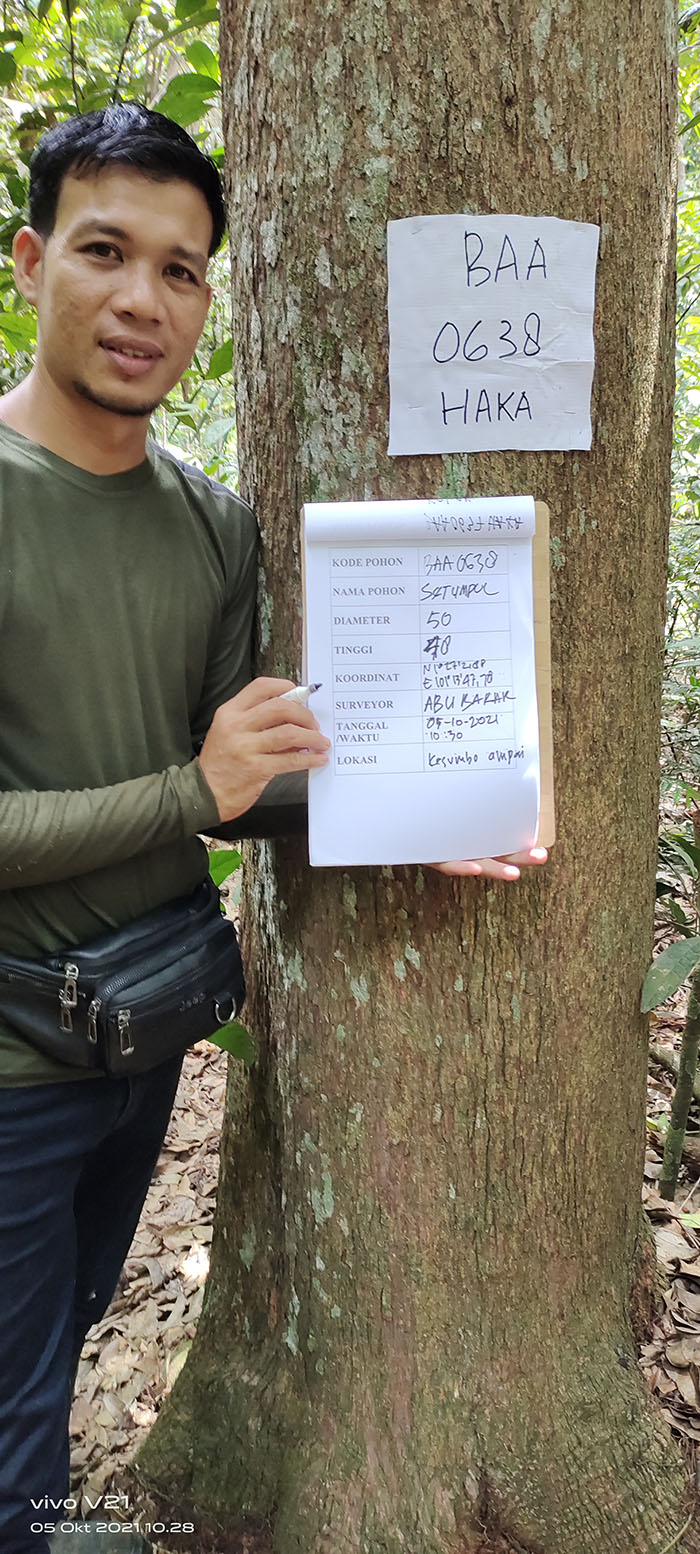 BAA
0638
HAKA
KODE POHON BAA 0638
NAMA POHON SETUMPUL
DIAMETER 50
TINGGI 18
KOORDINAT
E 101°13'47,78
SURVEYOR ABU BAKAR
TANGGAL 05-10-2021
/WAKTU 10:30
LOKASI Kesumbo ampai
Jeep
vivo V21
05 Okt 2021, 10.28